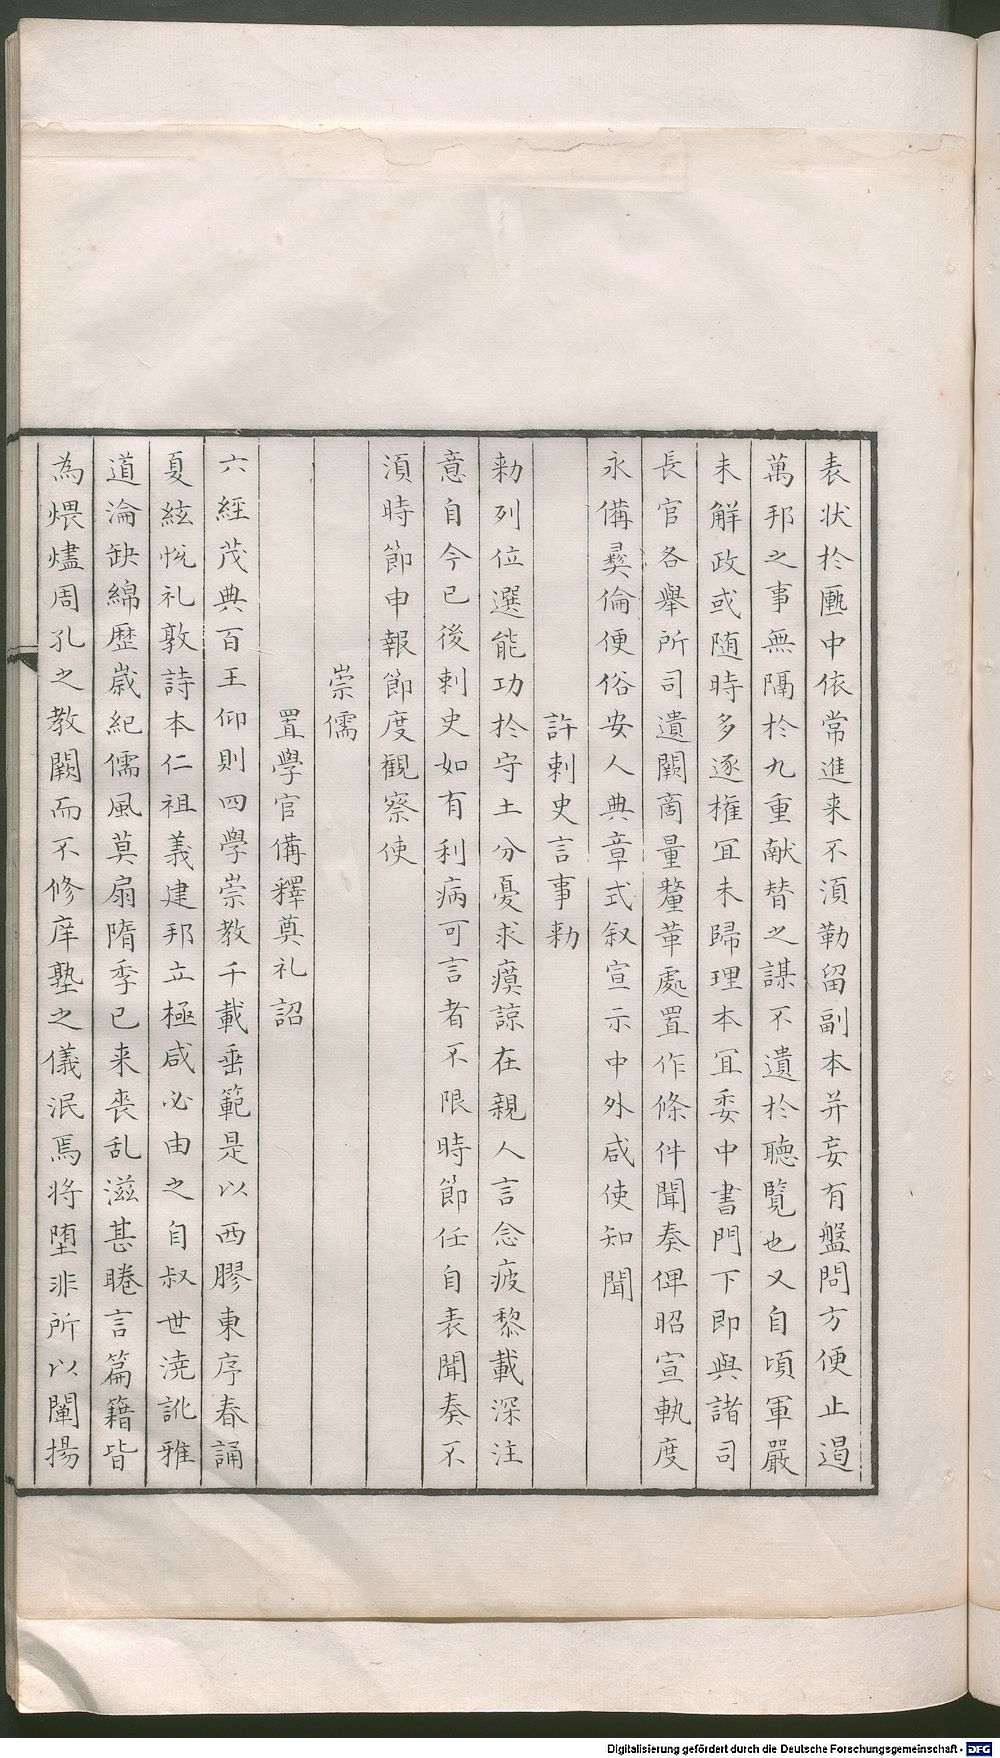 表状於匭中依常進来不湏勒留副本并妄有盤問方便止遏
萬邦之事無隔於九重献替之謀不遺於聴覧也又自頃軍嚴
未解政或随時多逐權冝未歸理本冝委中書門下即與諸司
長官各舉所司遺闕商量釐革處置作條件聞奏俾昭宣軌度
永備彝倫便俗安人典章式叙宣示中外咸使知聞
許刺史言事勅
勅列位選能功於守土分憂求瘼諒在親人言念疲黎載深注
意自今已後刺史如有利病可言者不限時節任自表聞奏不
湏時節申報節度觀察使
崇儒
置學官備釋奠礼詔
六經茂典百王仰則四學崇教千載垂範是以西膠東序春誦
夏絃恱礼敦詩本仁祖義建邦立極咸必由之自叔世澆訛雅
道淪缺綿歴歳紀儒風莫扇隋季已来喪乱滋甚睠言篇籍皆
為煨燼周孔之教闕而不修庠塾之儀泯焉将堕非所以闡揚
Digitalisierung gefördert durch die Deutsche Forschungsgemeinschaft - DFG